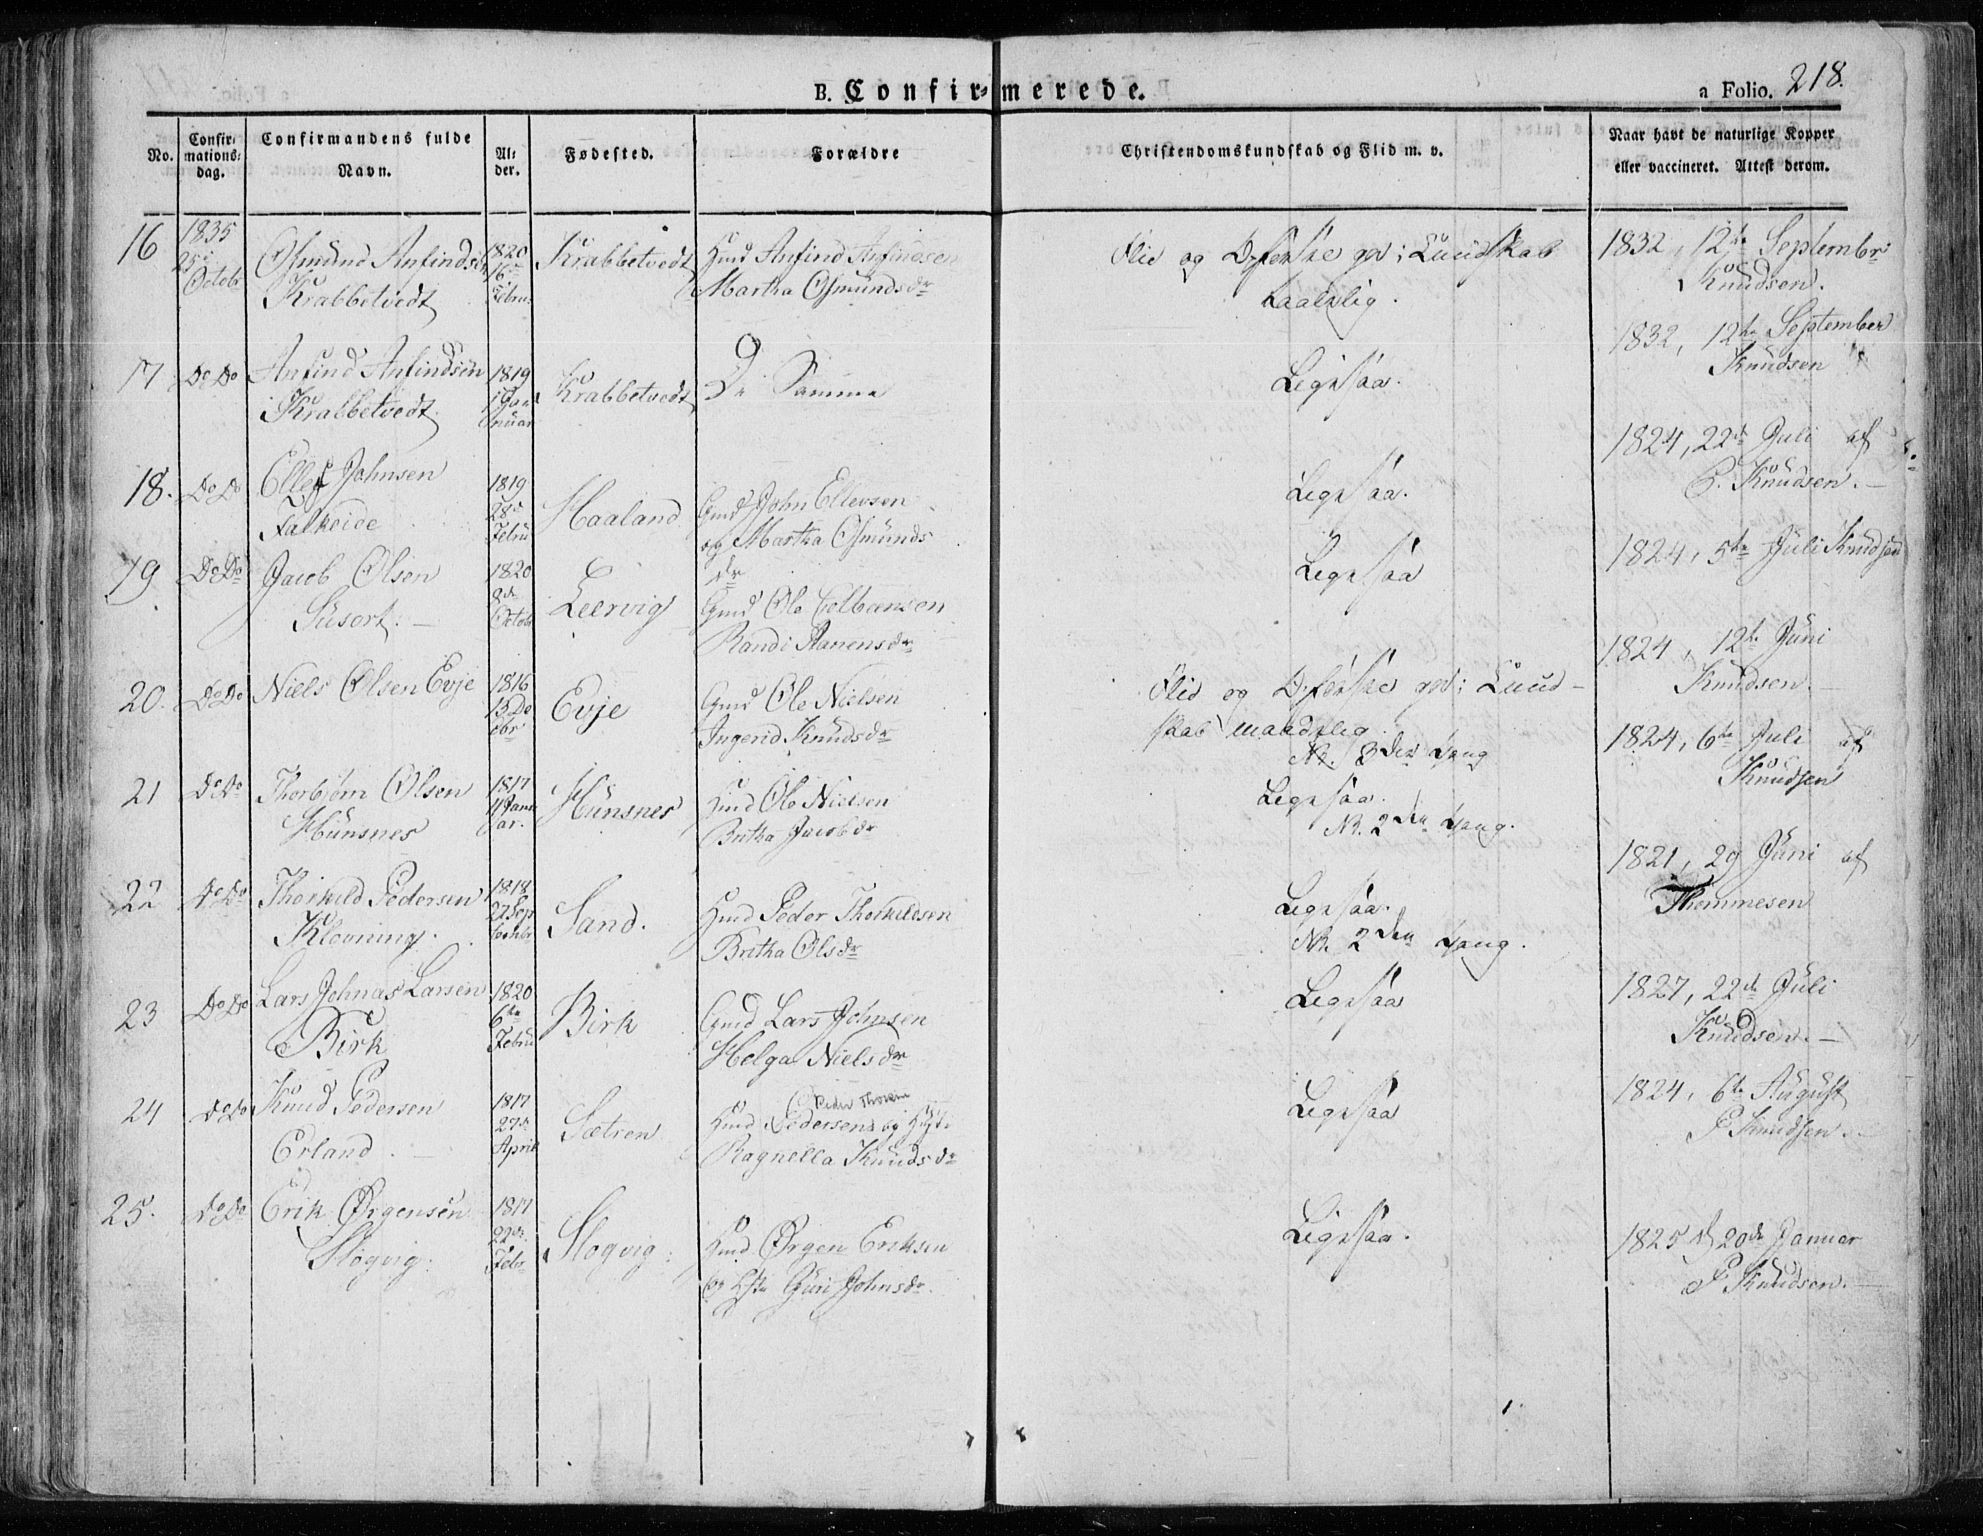 B. Confir=merede.
a Folio. 218.
No.
Confir=
mations=
dag.
Confirmandens fulde
Navn.
Al=
der.
Fødested.
Forældre
Christendomskundskab og Flid m. v.
Naar havt de naturlige Kopper
eller vaccineret. Attest derom.
16 1835 25de Octobr Osmund Anfinds. Krabbetvedt 1820 16de Febru: Krabbetvedt Hmd Anfind Anfindsen Martha Osmundsdr
Flid og god; Kundskab
1832, 12te September Knudsen.
17 Do Do Anfind Anfindsen Krabbetvedt 1819 Januar Krabbetvedt De Samme
Ligesaa.
1832, 12te September Knudsen
18. Do Do Ellef Johnsen Falkeide 1819 28de Febru Haaland Gmd John Ellevsen og Martha Osmundsdr
Ligesaa.
1824, 22de Juli af P. Knudsen.
19 Do Do Jacob Olsen Susort. 1820 8de Octobr Leervig Gmd Ole Randi
Ligesaa
1824, 5te Juli Knudsen
20. Do Do Niels Olsen Evje 1816 13 Evje Gmd Ole Nielsen Ingerid Knudsdr
Flid og god; Kund-
skab maadelig
NB. 3den Gang
1824, 12te Juni Knudsen.
21 Do Do Thorbjørn Olsen Hünsnes 1817 Januar. Hünsnes Hmd Ole Nielsen Britha Jacobdr
Ligesaa.
NB. 2den Gang.
1824, 6te Juli af Knudsen
22 Do Do Thorkild Pedersen Klovning. 1818 22 Septembr Sand. Hmd Peder Thorkildsen Britha Olsdr
Ligesaa.
NB. 2den Gang.
1821, 29 Juni af Thommesen
23 Do Do Lars Johnas Larsen Birk 1820 6te Febru Birk Gmd Lars Johnsen Helga Nielsdr
Ligesaa
1827, 22de Juli Knudsen.
24 Do Do Knud Pedersen Erland. 1817 27de April Sætren Hmd Peder Pedersen og Ragnella Knudsdr
Ligesaa
1824, 6te August P Knudsen.
25. Do Do Erik Ørgensen Slogvig. 1817 22de Febr Slogvig. Hmd Ørgen Eriksen og Guri Johnsdr.
Ligesaa.
1825 d 20de Januar P Knudsen.